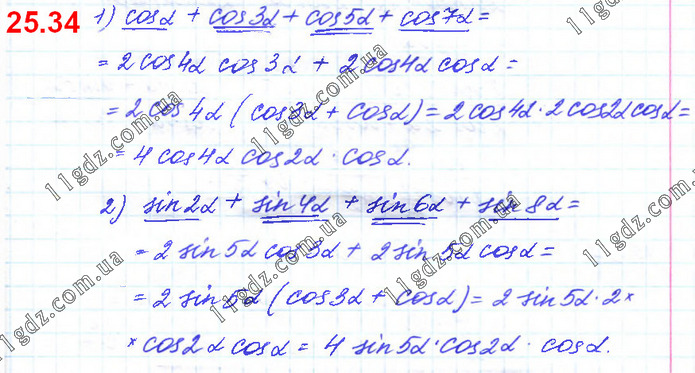 25.34
1) cosα + cos3α + cos5α + cos7α =
= 2 cos4α cos3α + 2cos4α cosα =
= 2 cos4α (cos3α + cosα) = 2 cos4α · 2 cos2α cosα =
= 4 cos4α cos2α · cosα.
2) sin2α + sin4α + sin6α + sin8α =
= 2 sin5α cos3α + 2 sin5α cosα =
= 2 sin5α (cos3α + cosα) = 2 sin5α · 2 ×
× cos2α cosα = 4 sin5α · cos2α · cosα.
11gdz.com.ua
11gdz.com.ua
11gdz.com.ua
11gdz.com.ua
11gdz.com.ua